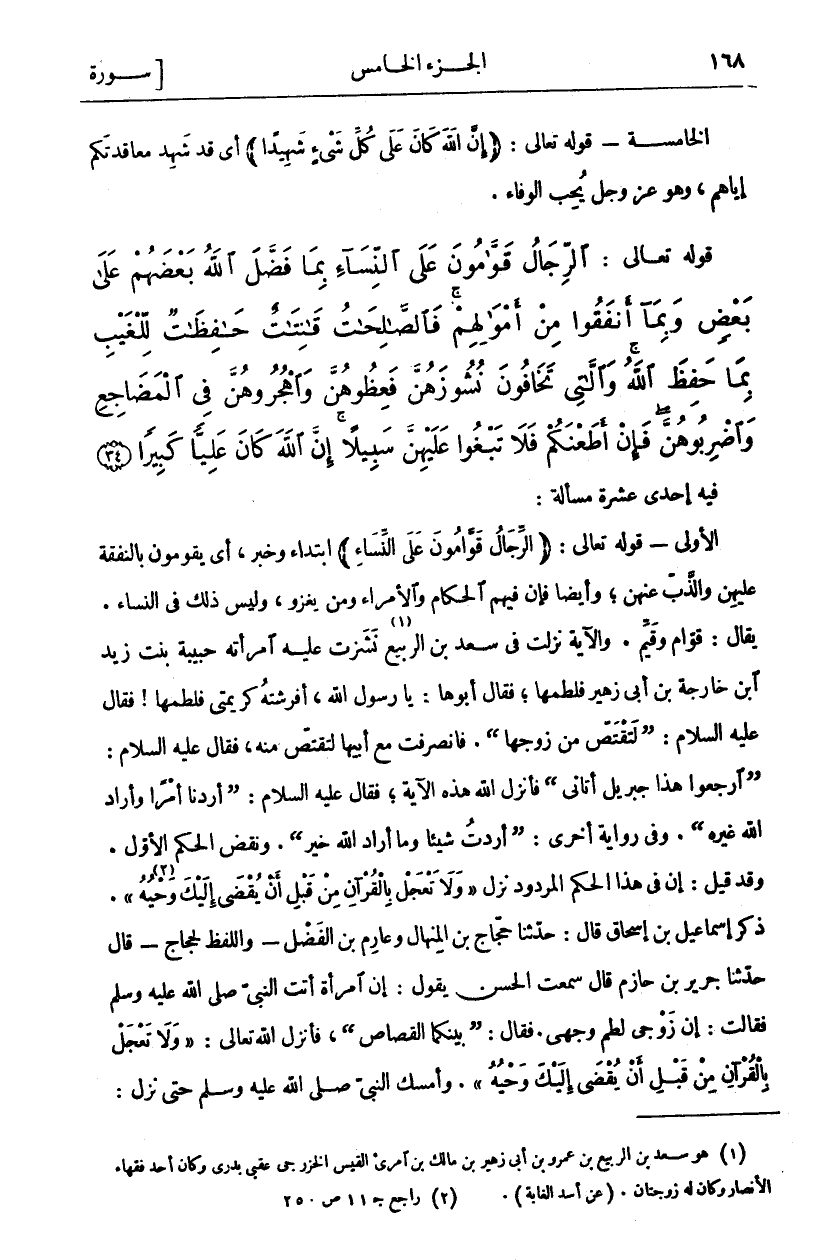 ١٦٨ الجزء الخامس [ سورة
الخامسة – قوله تعالى : ﴿ إِنَّ اللَّهَ كَانَ عَلَى كُلِّ شَىْءٍ شَهِيدًا ﴾ أى قد شَهِد معاقدتَكم
إياهم ، وهو عز وجل يُحِب الوفاء .
قوله تعالى : ٱلرِّجَالُ قَوَّٰمُونَ عَلَى ٱلنِّسَآءِ بِمَا فَضَّلَ ٱللَّهُ بَعْضَهُمْ عَلَىٰ
بَعْضٍ وَبِمَآ أَنفَقُوا مِنْ أَمْوَٰلِهِمْ ۚ فَٱلصَّٰلِحَٰتُ قَٰنِتَٰتٌ حَٰفِظَٰتٌ لِّلْغَيْبِ
بِمَا حَفِظَ ٱللَّهُ ۚ وَٱلَّٰتِى تَخَافُونَ نُشُوزَهُنَّ فَعِظُوهُنَّ وَٱهْجُرُوهُنَّ فِى ٱلْمَضَاجِعِ
وَٱضْرِبُوهُنَّ ۖ فَإِنْ أَطَعْنَكُمْ فَلَا تَبْغُوا عَلَيْهِنَّ سَبِيلًا ۚ إِنَّ ٱللَّهَ كَانَ عَلِيًّا كَبِيرًا ﴿٣٤﴾
فيه إحدى عشرة مسألة :
الأولى – قوله تعالى : ﴿ الرِّجَالُ قَوَّامُونَ عَلَى النِّسَاءِ ﴾ ابتداء وخبر ، أى يقومون بالنفقة
عليهن والذَّبّ عنهن ؛ وأيضا فإن فيهم ٱلحكام وٱلأمراء ومن يغزو ، وليس ذلك فى النساء .
يقال : قوّام وقَيِّم . والآية نزلت فى سعد بن الربيع (١) نَشَزت عليه ٱمرأته حبيبة بنت زيد
ٱبن خارجة بن أبى زهير فلطمها ؛ فقال أبوها : يا رسول الله ، أفرشتهُ كريمتى فلطمها ! فقال
عليه السلام : ”لَتَقْتَصّ من زوجها“ . فانصرفت مع أبيها لتقتصّ منه، فقال عليه السلام :
”ٱرجعوا هذا جبريل أتانى“ فأنزل الله هذه الآية ؛ فقال عليه السلام : ”أردنا أمْرًا وأراد
الله غيره“ . وفى رواية أخرى : ”أردتُ شيئا وما أراد الله خير“ . ونقض الحكم الأوّل .
وقد قيل : إن فى هذا الحكم المردود نزل « وَلَا تَعْجَلْ بِالْقُرْآنِ مِنْ قَبْلِ أَنْ يُقْضَى إِلَيْكَ وَحْيُهُ (٢) » .
ذكر إسماعيل بن إسحاق قال : حدّثنا حجّاج بن المِنهال وعارِم بن الفَضْل – واللفظ لحجاج – قال
حدّثنا جرير بن حازم قال سمعت الحسن يقول : إن ٱمرأة أتت النبىّ صلى الله عليه وسلم
فقالت : إن زَوْجى لطم وجهى. فقال : ”بينكما القصاص“ ، فأنزل الله تعالى : « وَلَا تَعْجَلْ
بِالْقُرْآنِ مِنْ قَبْلِ أَنْ يُقْضَى إِلَيْكَ وَحْيُهُ » . وأمسك النبىّ صلى الله عليه وسلم حتى نزل :
(١) هو سعد بن الربيع بن عمرو بن أبى زهير بن مالك بن ٱمرئ القيس الخزرجى عقبى بدرى وكان أحد فقهاء
الأنصار وكان له زوجتان . (عن أسد الغابة) . (٢) راجع ج ١١ ص ٢٥٠